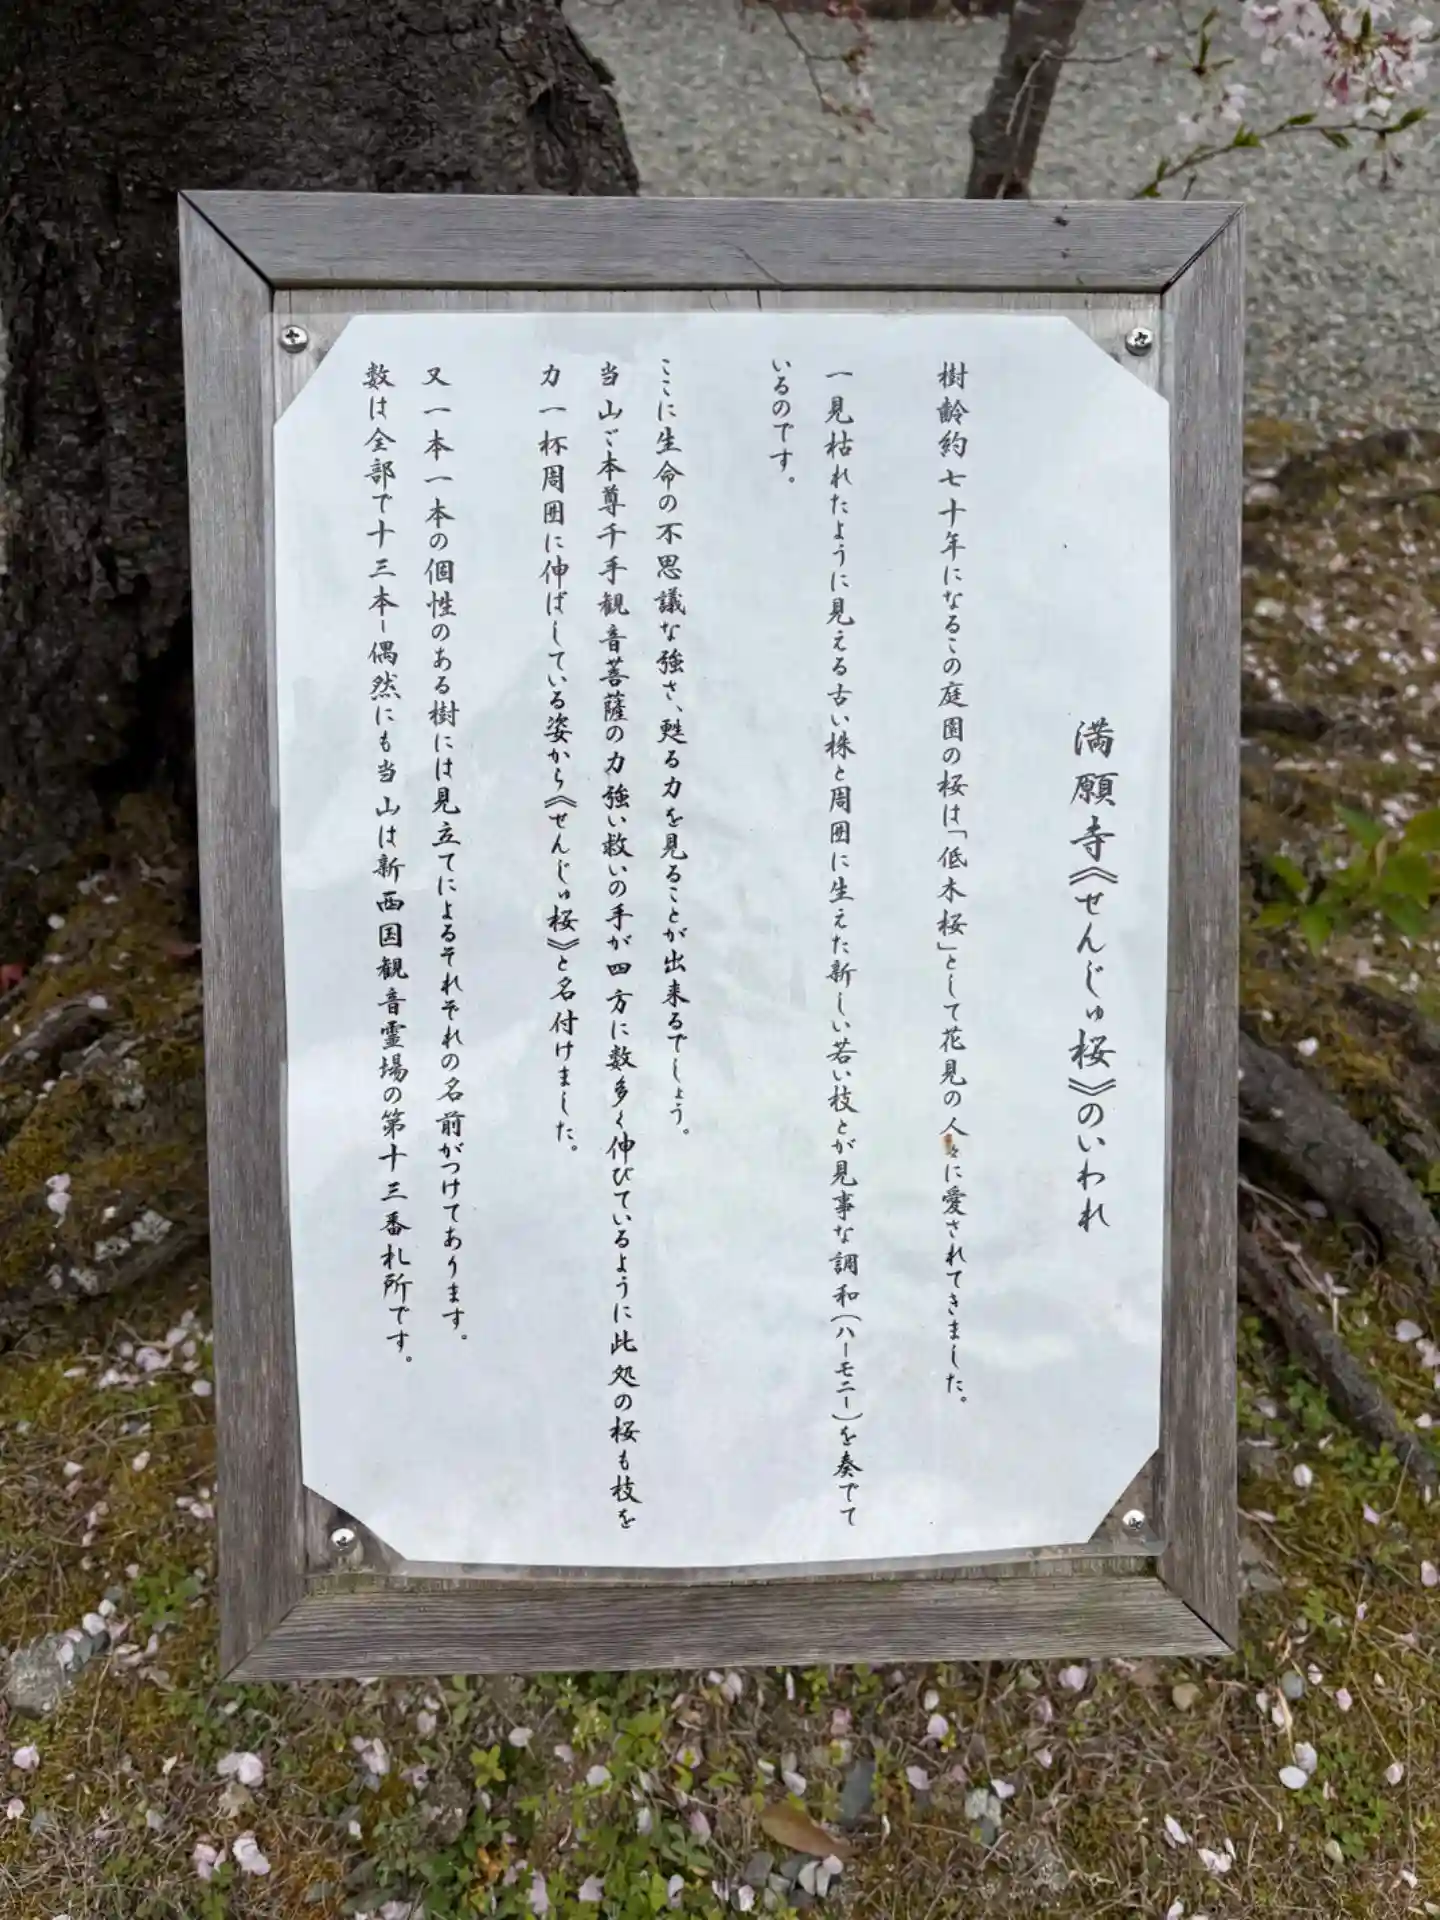 満願寺《せんじゅ桜》のいわれ
樹齢約七十年になるこの庭園の桜は「低木桜」として花見の人々に愛されてきました。
一見枯れたように見える古い株と周囲に生えた新しい若い枝とが見事な調和(ハーモニー)を奏でて
いるのです。
ここに生命の不思議な強さ、甦る力を見ることが出来るでしょう。
当山ご本尊千手観音菩薩の力強い救いの手が四方に数多く伸びているように此処の桜も枝を
力一杯周囲に伸ばしている姿から《せんじゅ桜》と名付けました。
又一本一本の個性のある樹には見立てによるそれぞれの名前がつけてあります。
数は全部で十三本ー偶然にも当山は新西国観音霊場の第十三番札所です。